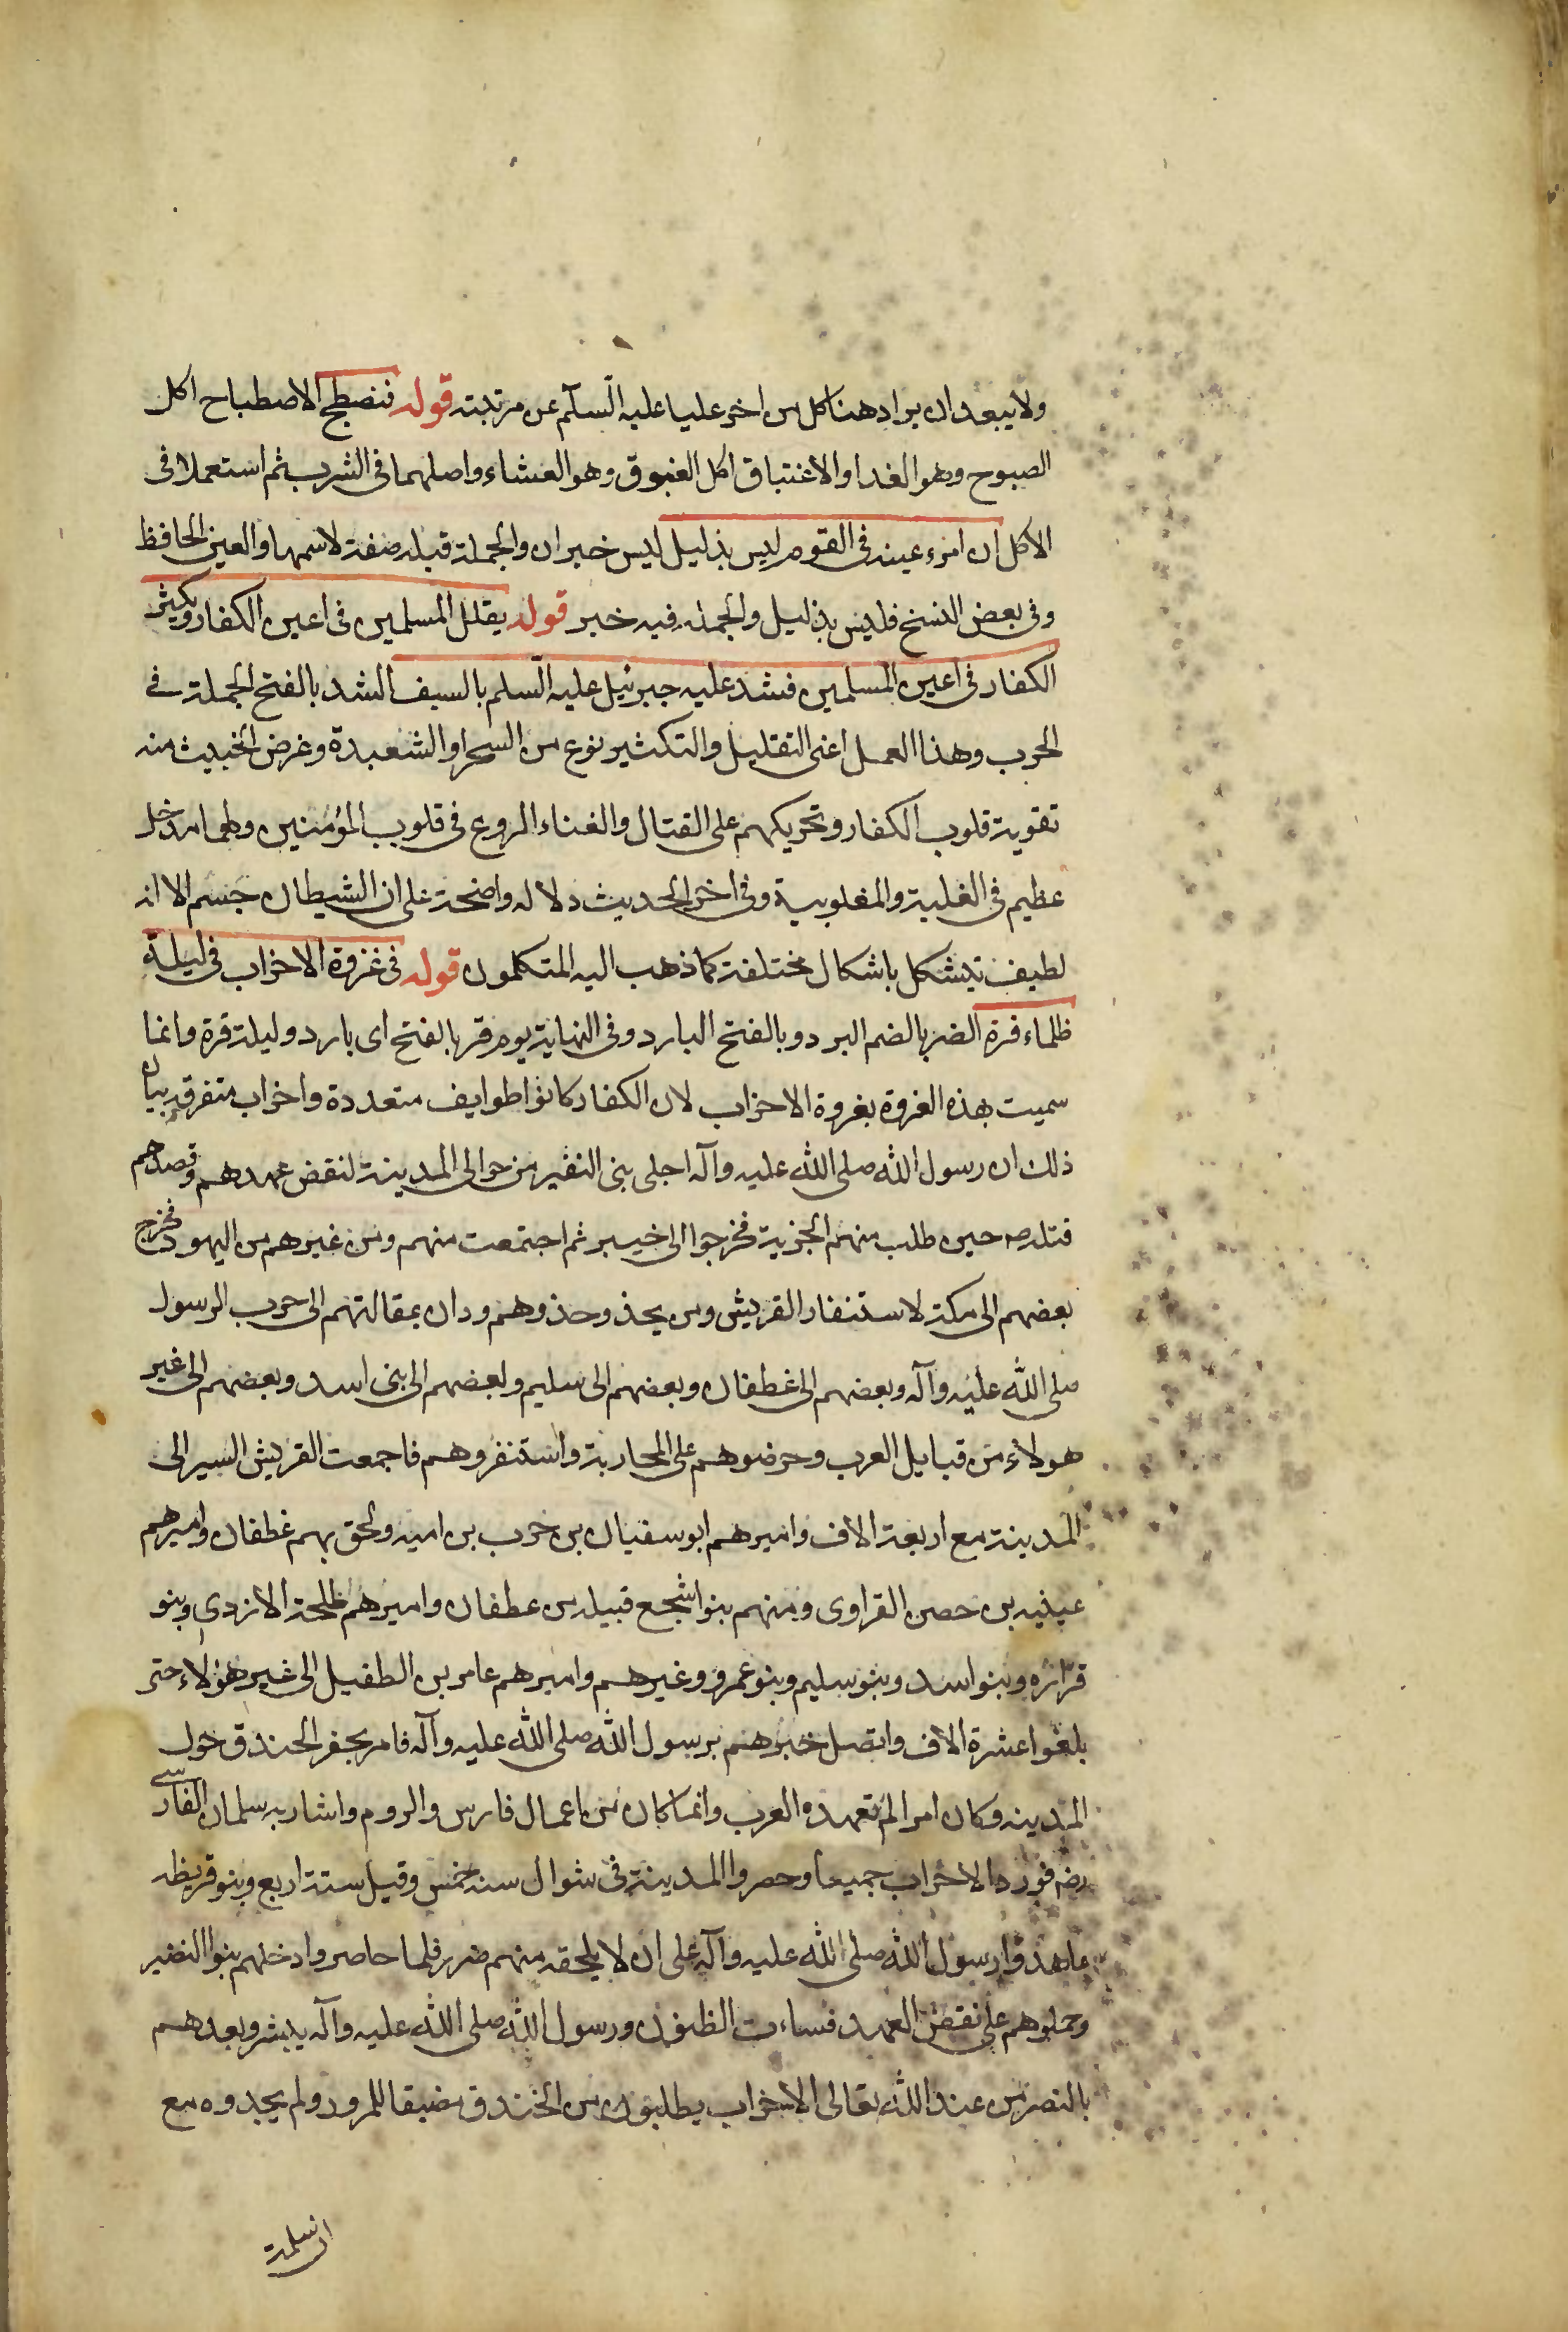 ولا يبعد ان يراد هنا كل من اخر عليا عليه السلام عن مرتبته قوله فنصطبح الاصطباح اكل
الصبوح وهو الغدا والاغتباق اكل الغبوق وهو العشاء واصلهما فى الشرب ثم استعملا فى
الاكل ان امرء عينه فى القوم ليس بذليل ليس خبر ان والجملة قبله صفة لاسمها والعين الحافظ
وفى بعض النسخ فليس بذليل والجملة فيه خبر قوله يقلل المسلمين فى اعين الكفار ويكثر
الكفار فى اعين المسلمين فشد عليه جبرئيل عليه السلم بالسيف الشد بالفتح الحملة فى
الحرب وهذا العمل اعنى التقليل والتكثير نوع من السحر او الشعبدة وغرض الخبيث منه
تقوية قلوب الكفار وتحريكهم على القتال والغناء الروع فى قلوب المؤمنين ولهما مدخل
عظيم فى الغلبة والمغلوبية وفى اخر الحديث دلاله واضحة على ان الشيطان جسم الا انه
لطيف يتشكل باشكال مختلفة كما ذهب اليه المتكلمون قوله فى غزوة الاحزاب فى ليلة
ظلماء قرة القر بالضم البرد وبالفتح البارد وفى النهاية يوم قر بالفتح اى بارد وليلة قرة وانما
سميت هذه الغزوة بغزوة الاحزاب لان الكفار كانوا طوايف متعددة واحزاب متفرقة بيان
ذلك ان رسول الله صلى الله عليه وآله اجلى بنى النضير من حوالى المدينة لنقض عهدهم وقصدهم
قتله ص حين طلب منهم الجزية فخرجوا الى خيبر ثم اجتمعت منهم ومن غيرهم من اليهود فخرج
بعضهم الى مكة لاستنفار القريش ومن يحذو حذوهم ودان بمقالتهم الى حرب الرسول
صلى الله عليه وآله وبعضهم الى غطفان وبعضهم الى سليم وبعضهم الى بنى اسد وبعضهم الى غير
هولاء من قبايل العرب وحرضوهم على المحاربة واستنفروهم فاجمعت القريش السير الى
المدينة مع اربعة الاف واميرهم ابو سفيان بن حرب بن اميه ولحق بهم غطفان واميرهم
عيينه بن حصن الفزاوى ومنهم بنو اشجع قبيله من غطفان واميرهم طلحة الازدى وبنو
فزاره وبنو اسد وبنو سليم وبنو عمرو وغيرهم واميرهم عامر بن الطفيل الى غير هؤلاء حتى
بلغوا عشرة الاف واتصل خبرهم برسول الله صلى الله عليه وآله فامر بحفر الخندق حول
المدينه وكان امرا لم تعهده العرب وانما كان من اعمال فارس والروم واشار به سلمان الفارسى
رض فورد الاحزاب جميعا وحصروا المدينة فى شوال سنة خمس وقيل ستة اربع وبنو قريظه
عاهدوا رسول الله صلى الله عليه وآله على ان لا يلحقه منهم ضرر فلما حاصروا دخلهم بنوا النضير
وحملوهم على نقض العهد فساءت الظنون ورسول الله صلى الله عليه وآله يبشر وبعدهم
بالنصر من عند الله تعالى الاحزاب يطلبون من الخندق مضيقا للمرور ولم يجدوه مع
ان سلمة